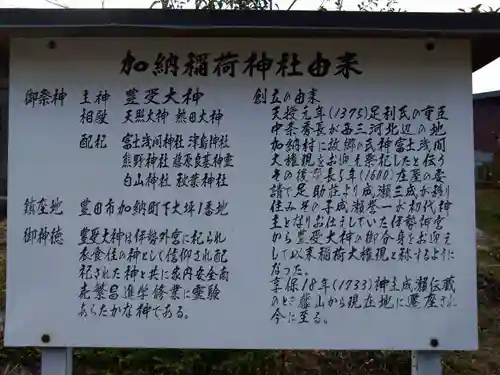 加納稲荷神社由来
御祭神 主神 豊受大神
相殿 天照大神 熊田大神
配祀 富士浅間神社 津島神社
熊野神社 藤原良基神霊
白山神社 秋葉神社
鎮座地 豊田市加納町下大坪1番地
御神徳 豊受大神は伊勢外宮に祀られ
衣食住の神として信仰され配
祀された神と共に家内安全商
売繁昌進学修業に霊験
あらたかな神である。
創立の由来
天授元年(1375)足利氏の重臣
中条秀長が西三河北辺の地
加納村に故郷の武神富士浅間
大権現をお迎え祭祀したと伝う
その後慶長5年(1600)庄屋の要
請で足助荘より成瀬三成が移り
住みその子成瀬誉一が初代神
主となりお仕えしていた伊勢神宮
から豊受大神の御分身をお迎えし
て以来稲荷大権現と称するように
なった。
享保18年(1733)神主成瀬伝蔵
のとき藤山から現在地に遷座され
今に至る。